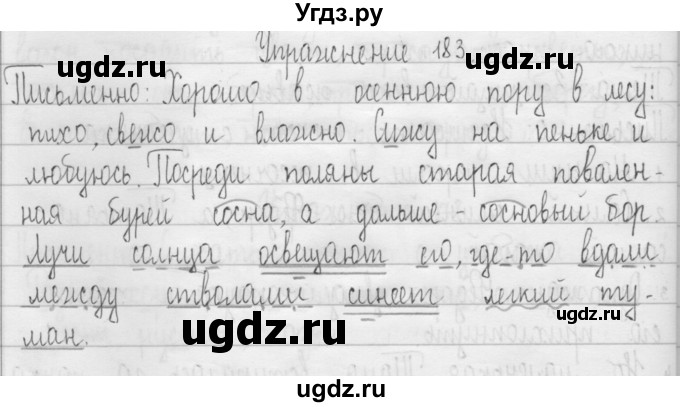 Угдз.ру
Упражнение 183
Письменно: Хорошо в осеннюю пору в лесу:
тихо, свежо и влажно. Сижу на пеньке и
любуюсь. Посреди поляны старая повален-
ная бурей сосна, а дальше - сосновый бор
Лучи солнца освещают его, где-то вдали
между стволами синеет легкий ту-
ман.
ugdz.ru
ugdz.ru
ugdz.ru
ugdz.ru
ugdz.ru
ugdz.ru
ugdz.ru